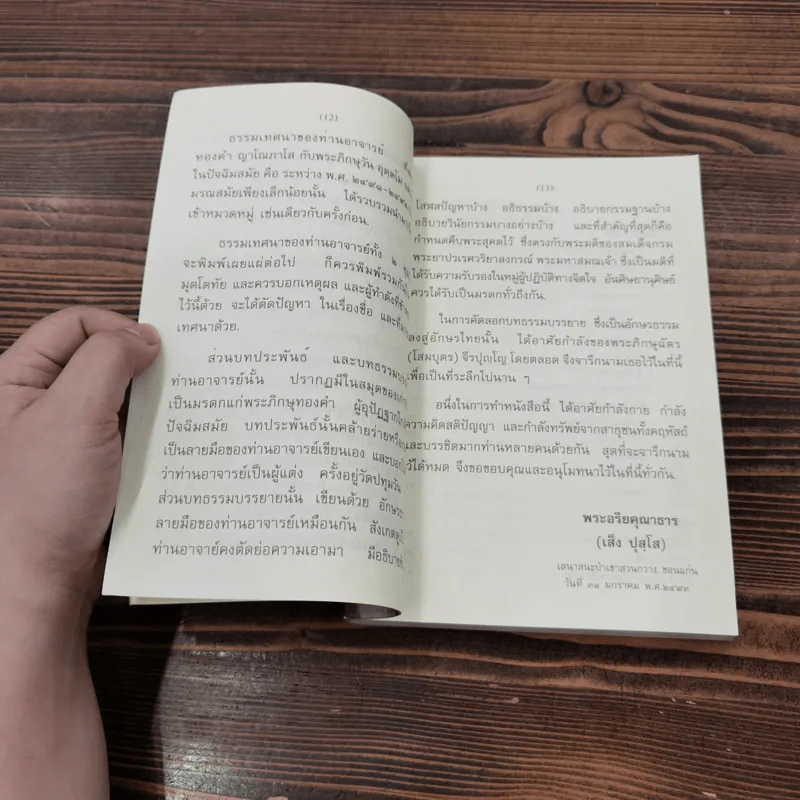 (12)
ธรรมเทศนาของท่านอาจารย์
ทองคำ ญาโณภาโส กับพระภิกษุวัน อุตฺตโม
ในปัจฉิมสมัย คือ ระหว่าง พ.ศ. ๒๔๙๑-๒๔๙๒
มรณสมัยเพียงเล็กน้อยนั้น ได้รวบรวม
เข้าหมวดหมู่ เช่นเดียวกับครั้งก่อน.
ธรรมเทศนาของท่านอาจารย์ทั้ง ๒
จะพิมพ์เผยแผ่ต่อไป ก็ควรพิมพ์รวมกัน
มุตโตทัย และควรบอกเหตุผล และผู้ทำดังที่
ไว้นี้ด้วย จะได้ตัดปัญหา ในเรื่องชื่อ และที่มา
เทศนาด้วย.
ส่วนบทประพันธ์ และบทธรรมบรร
ท่านอาจารย์นั้น ปรากฏมีในสมุดของเก่า
เป็นมรดกแก่พระภิกษุทองคำ ผู้อุปัฏฐาก
ปัจฉิมสมัย บทประพันธ์นั้นคล้ายร่ายหรือ
เป็นลายมือของท่านอาจารย์เขียนเอง และบอก
ว่าท่านอาจารย์เป็นผู้แต่ง ครั้งอยู่วัดปทุมวัน
ส่วนบทธรรมบรรยายนั้น เขียนด้วย อักษร
ลายมือของท่านอาจารย์เหมือนกัน สังเกตดู
ท่านอาจาย์คงตัดย่อความเอามา มีอธิบาย
(13)
โสฬสปัญหาบ้าง อธิธรรมบ้าง อธิบายกรรมฐานบ้าง
อธิบายวินัยกรรมบางอย่างบ้าง และที่สำคัญที่สุดก็คือ
กำหนดคืบพระสุคตไว้ ซึ่งตรงกับพระมติของสมเด็จกรม
พระยาปวเรศวริยาลงกรณ์ พระมหาสมณเจ้า ซึ่งเป็นมติที่
ได้รับความรับรองในหมู่ผู้ปฏิบัติทางจิตใจ อันศิษยานุศิษย์
ควรได้รับเป็นมรดกทั่วถึงกัน.
ในการคัดลอกบทธรรมบรรยาย ซึ่งเป็นอักษรธรรม
ลงสู่อักษรไทยนั้น ได้อาศัยกำลังของพระภิกษุฉัตร
(โสมบุตร) จิรปุญฺโญ โดยตลอด จึงจารึกนามเธอไว้ในที่นี้
เพื่อเป็นที่ระลึกไปนาน ๆ
อนึ่งในการทำหนังสือนี้ ได้อาศัยกำลังกาย กำลัง
ความคิดสติปัญญา และกำลังทรัพย์จากสาธุชนทั้งคฤหัสถ์
และบรรชิตมากท่านหลายคนด้วยกัน สุดที่จะจารึกนาม
ไว้ได้หมด จึงขอขอบคุณและอนุโมทนาไว้ในที่นี้ทั่วกัน.
พระอริยคุณาธาร
(เส็ง ปุสฺโส)
เสนาสนะป่าเขาสวนกวาง ขอนแก่น
วันที่ ๓๑ มกราคม พ.ศ.๒๔๙๓